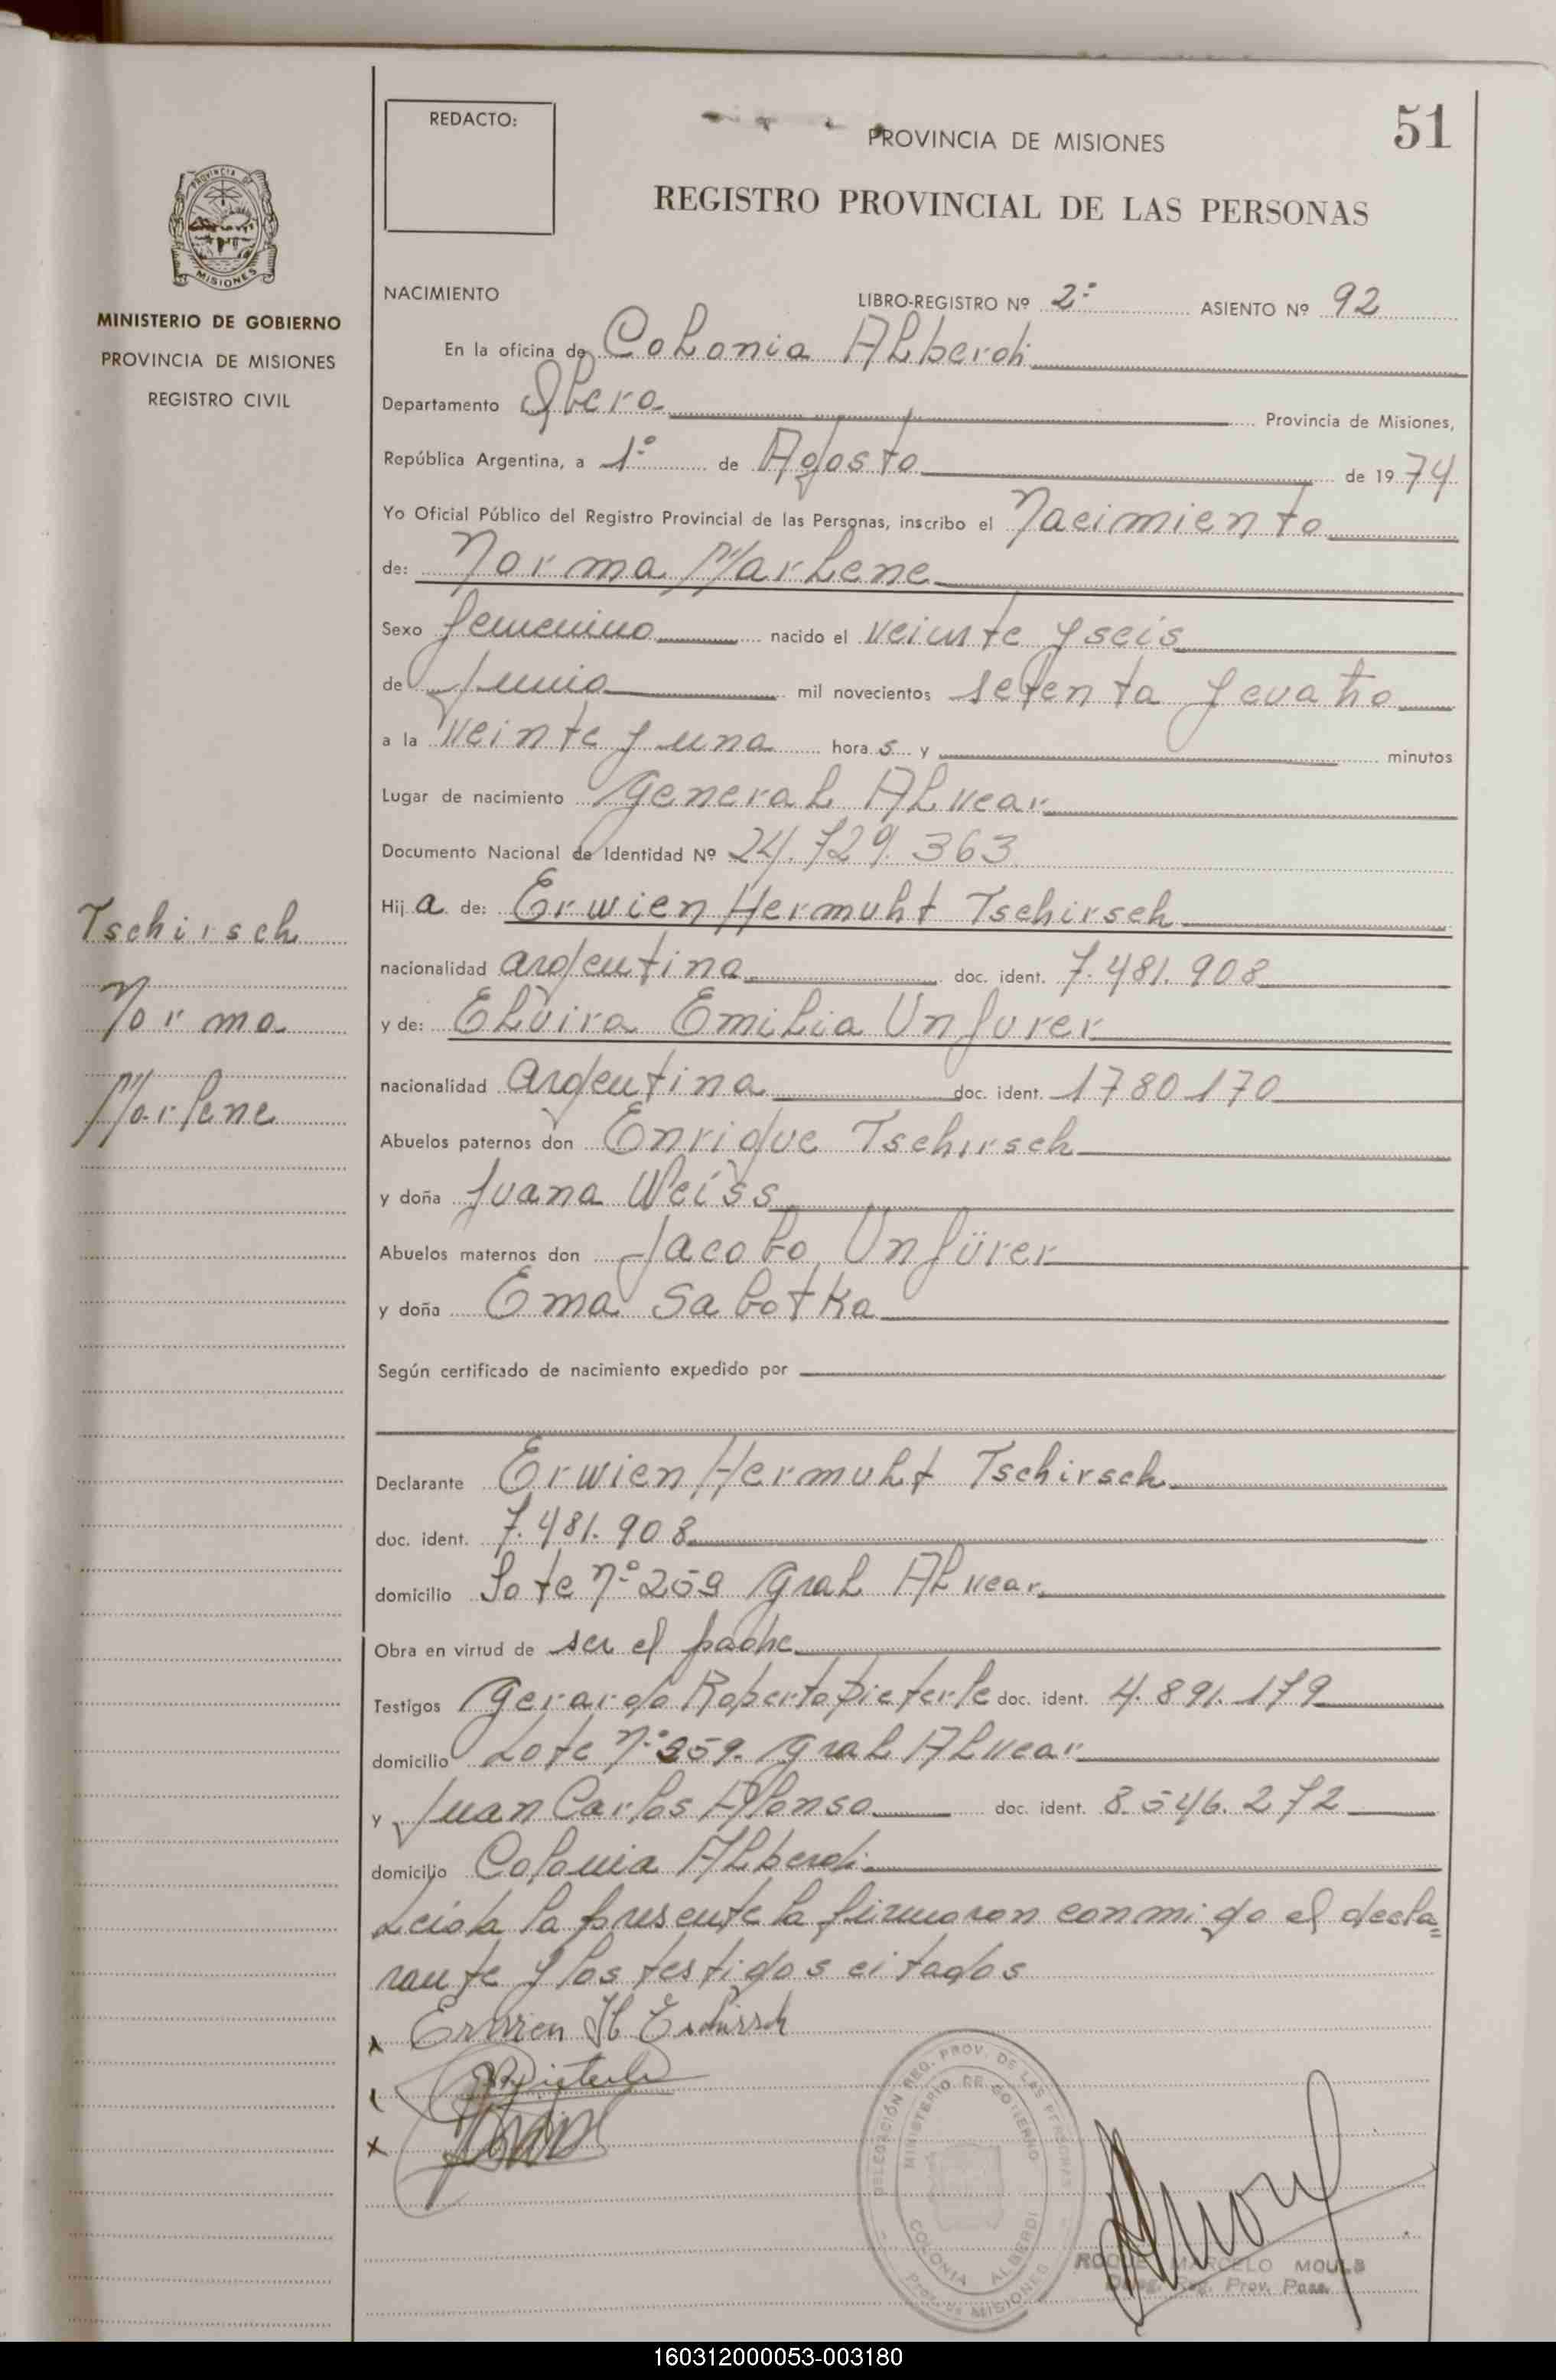 51
REDACTO:
PROVINCIA DE MISIONES
REGISTRO PROVINCIAL DE LAS PERSONAS
PROVINCIA DE
MISIONES
MINISTERIO DE GOBIERNO
PROVINCIA DE MISIONES
REGISTRO CIVIL
NACIMIENTO LIBRO-REGISTRO Nº 2º ASIENTO Nº 92
En la oficina de Colonia Alberdi
Departamento Obera Provincia de Misiones,
República Argentina, a 1º de Agosto de 1974
Yo Oficial Público del Registro Provincial de las Personas, inscribo el Nacimiento
de: Norma Marlene
Sexo femenino nacido el veinte y seis
de Junio mil novecientos setenta y cuatro
a la veinte y una hora s y minutos
Lugar de nacimiento General Alvear
Documento Nacional de Identidad Nº 24.729.363
Hij a de: Erwien Hermuht Tschirsch
nacionalidad argentina doc. ident. 7.481.908
y de: Elvira Emilia Unfurer
nacionalidad argentina doc. ident. 1780170
Abuelos paternos don Enrique Tschirsch
y doña Juana Weiss
Abuelos maternos don Jacobo Unfürer
y doña Ema Sabotka
Según certificado de nacimiento expedido por
Declarante Erwien Hermuht Tschirsch
doc. ident. 7.481.908
domicilio Lote Nº 259 Gral Alvear
Obra en virtud de ser el padre
Testigos Gerardo Roberto Dieterle doc. ident. 4.891.179
domicilio Lote Nº 259. Gral Alvear
y Juan Carlos Alonso doc. ident. 8.546.272
domicilio Colonia Alberdi
Leida la presente la firmaron conmigo el decla=
rante y los testigos citados
Tschirsch
Norma
Marlene
Erwien H Tschirsch
Dieterle
DELEGACIÓN REG. PROV. DE LAS PERSONAS
MINISTERIO DE GOBIERNO
COLONIA ALBERDI
Prov. de MISIONES
ROQUE MARCELO MOULB
Deleg. Reg. Prov. Pers.
160312000053-003180